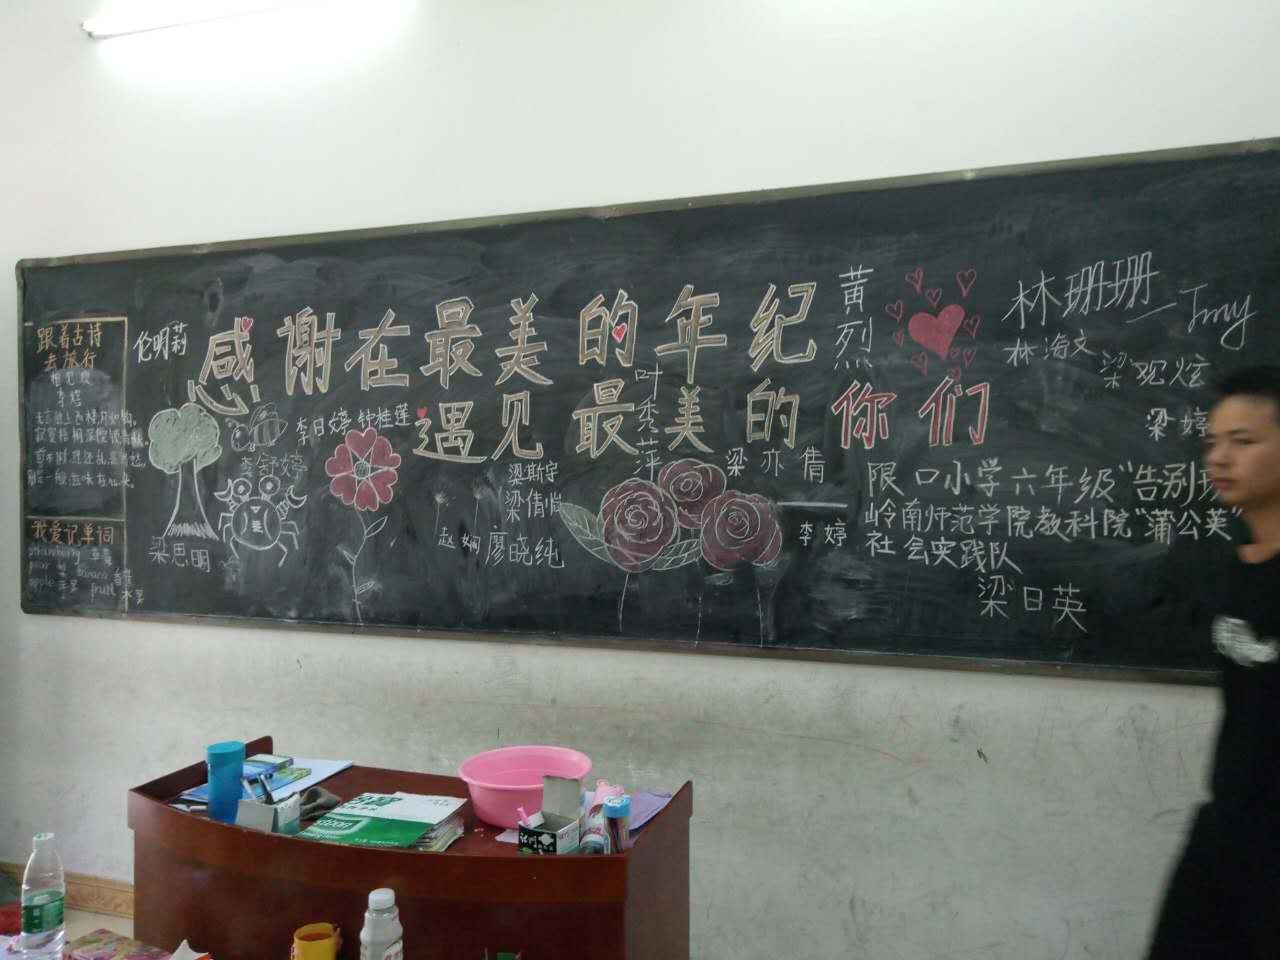 跟着古诗
去旅行
相见欢
李煜
无言独上西楼,月如钩。
我爱记单词
strawberry 草莓
pear 梨 banana 香蕉
apple 苹果 fruit 水果
伦明莉
感谢在最美的年纪
遇见最美的你们
黄烈
林珊珊—Jmy
林海文
梁观炫
梁婷
李日婷
钟桂莲
李舒婷
叶秀萍
梁斯宇
梁倩怡
梁亦倩
梁思明
赵娴
廖晓纯
李婷
限口小学六年级“告别
岭南师范学院教科院“蒲公英”
社会实践队
梁日英